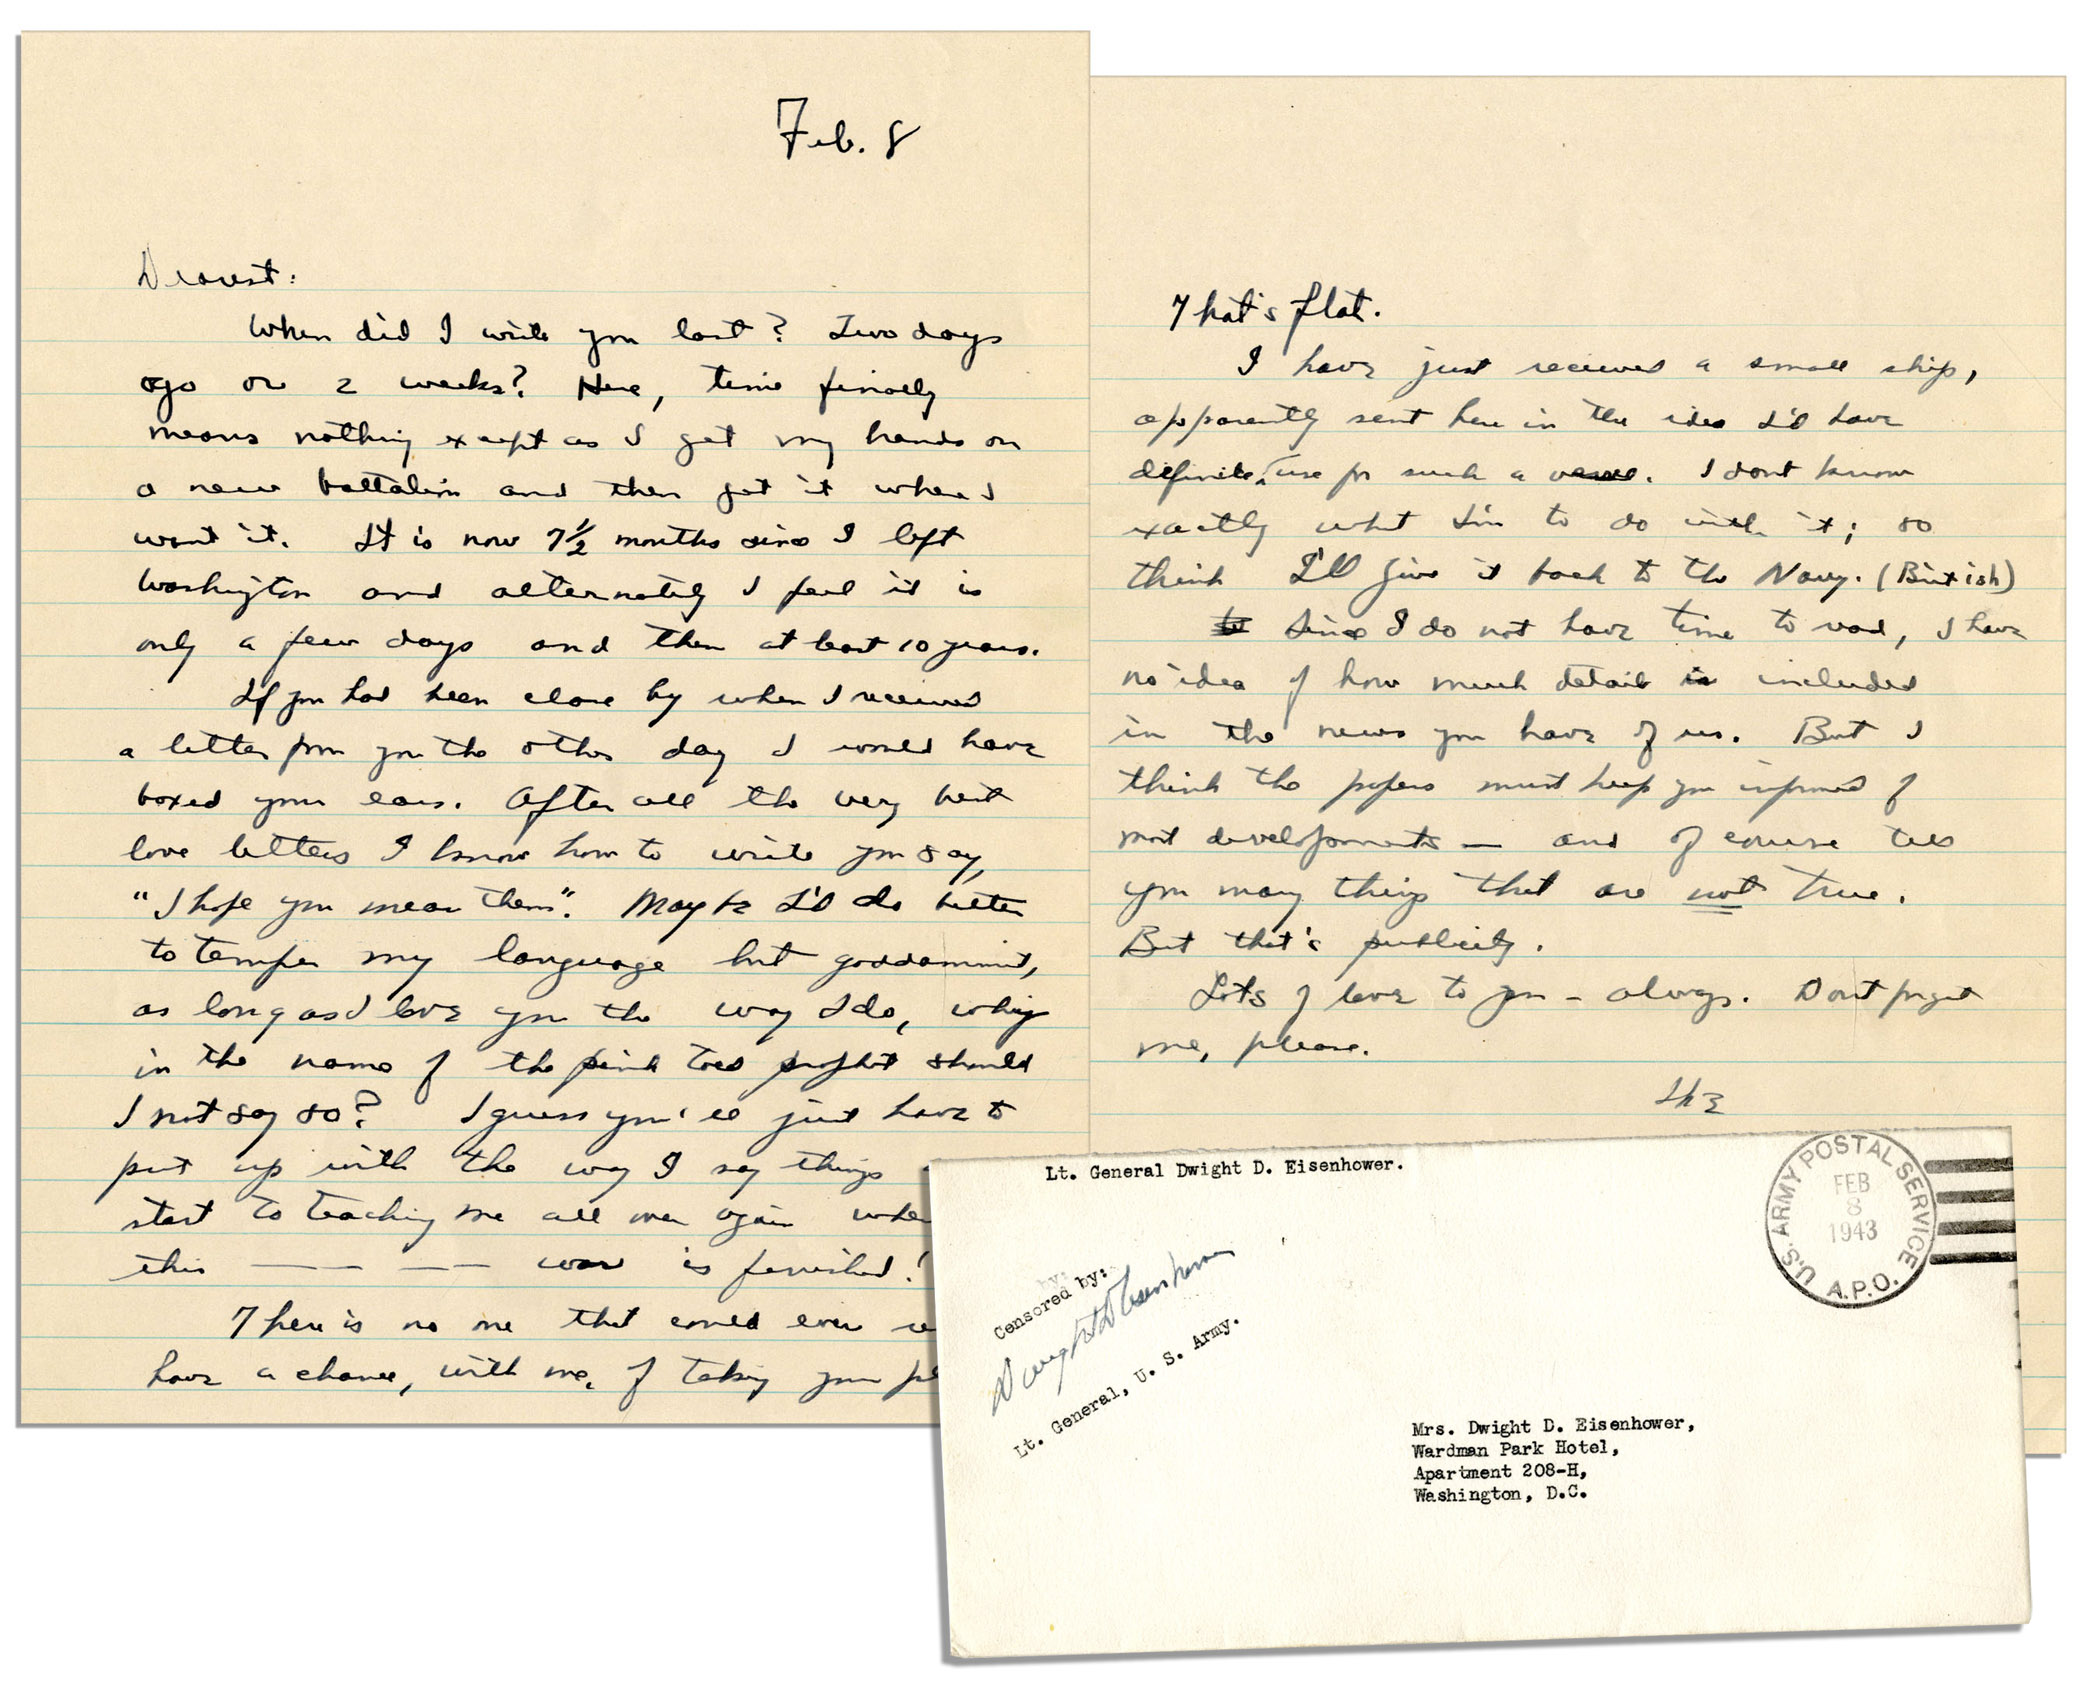 Feb. 8
Dearest:
When did I write you last? Two days
ago or 2 weeks? Here, time finally
means nothing except as I get my hands on
a new battalion and then get it where I
want it. It is now 7½ months since I left
Washington and alternately I feel it is
only a few days and then at least 10 years.
If you had been close by when I received
a letter from you the other day I would have
boxed your ears. After all the very best
love letters I know how to write you say,
"I hope you mean them". Maybe I'd do better
to temper my language but goddammit,
as long as I love you the way I do, why
in the name of the pink toed prophet should
I not say so? I guess you'll just have to
put up with the way I say things
start to teaching me all over again when
this — — — — war is finished!
There is no one that could ever
have a chance, with me, of taking your pl
That's flat.
I have just received a small ship,
apparently sent here in the idea I'd have
definite use for such a . I dont know
exactly what I'm to do with it; so
think I'll give it back to the Navy. (British)
Since I do not have time to read, I have
no idea of how much detail is included
in the news you have of us. But I
think the papers must keep you informed of
most developments — and of course tell
you many things that are not true.
But that's publicity.
Lots of love to you - always. Dont forget
me, please.
Ike
Lt. General Dwight D. Eisenhower.
U.S. ARMY POSTAL SERVICE
FEB
8
1943
A.P.O.
by:
Censored by:
Dwight D Eisenhower
Lt. General, U. S. Army.
Mrs. Dwight D. Eisenhower,
Wardman Park Hotel,
Apartment 208-H,
Washington, D.C.